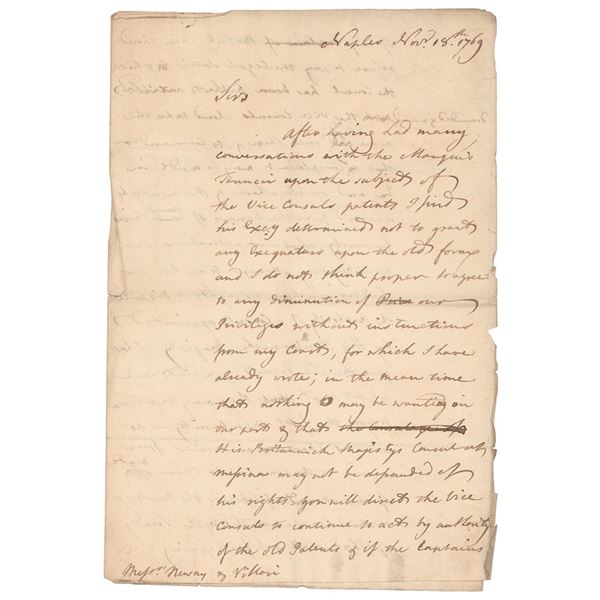 Naples Novr. 18th. 1769
Sirs
After having had many
conversations with the Marquis
Tanucci upon the subject of
the Vice Consuls patents I find
his Excy determined not to grant
any Exequaturs upon the old forms
and I do not think proper to agree
to any diminution of our
Privileges without instructions
from my Court, for which I have
already wrote; in the mean time
that nothing may be wanting in
our part & that
His Britannick Majestys Consul at
Messina may not be defrauded of
his rights you will direct the Vice
Consuls to continue to act by authority
of the old Patents & if the Captains
Messrs. Newny & Villari